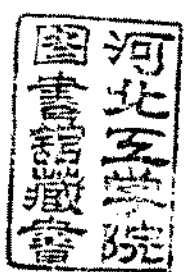 河北工学院
圖書館藏書